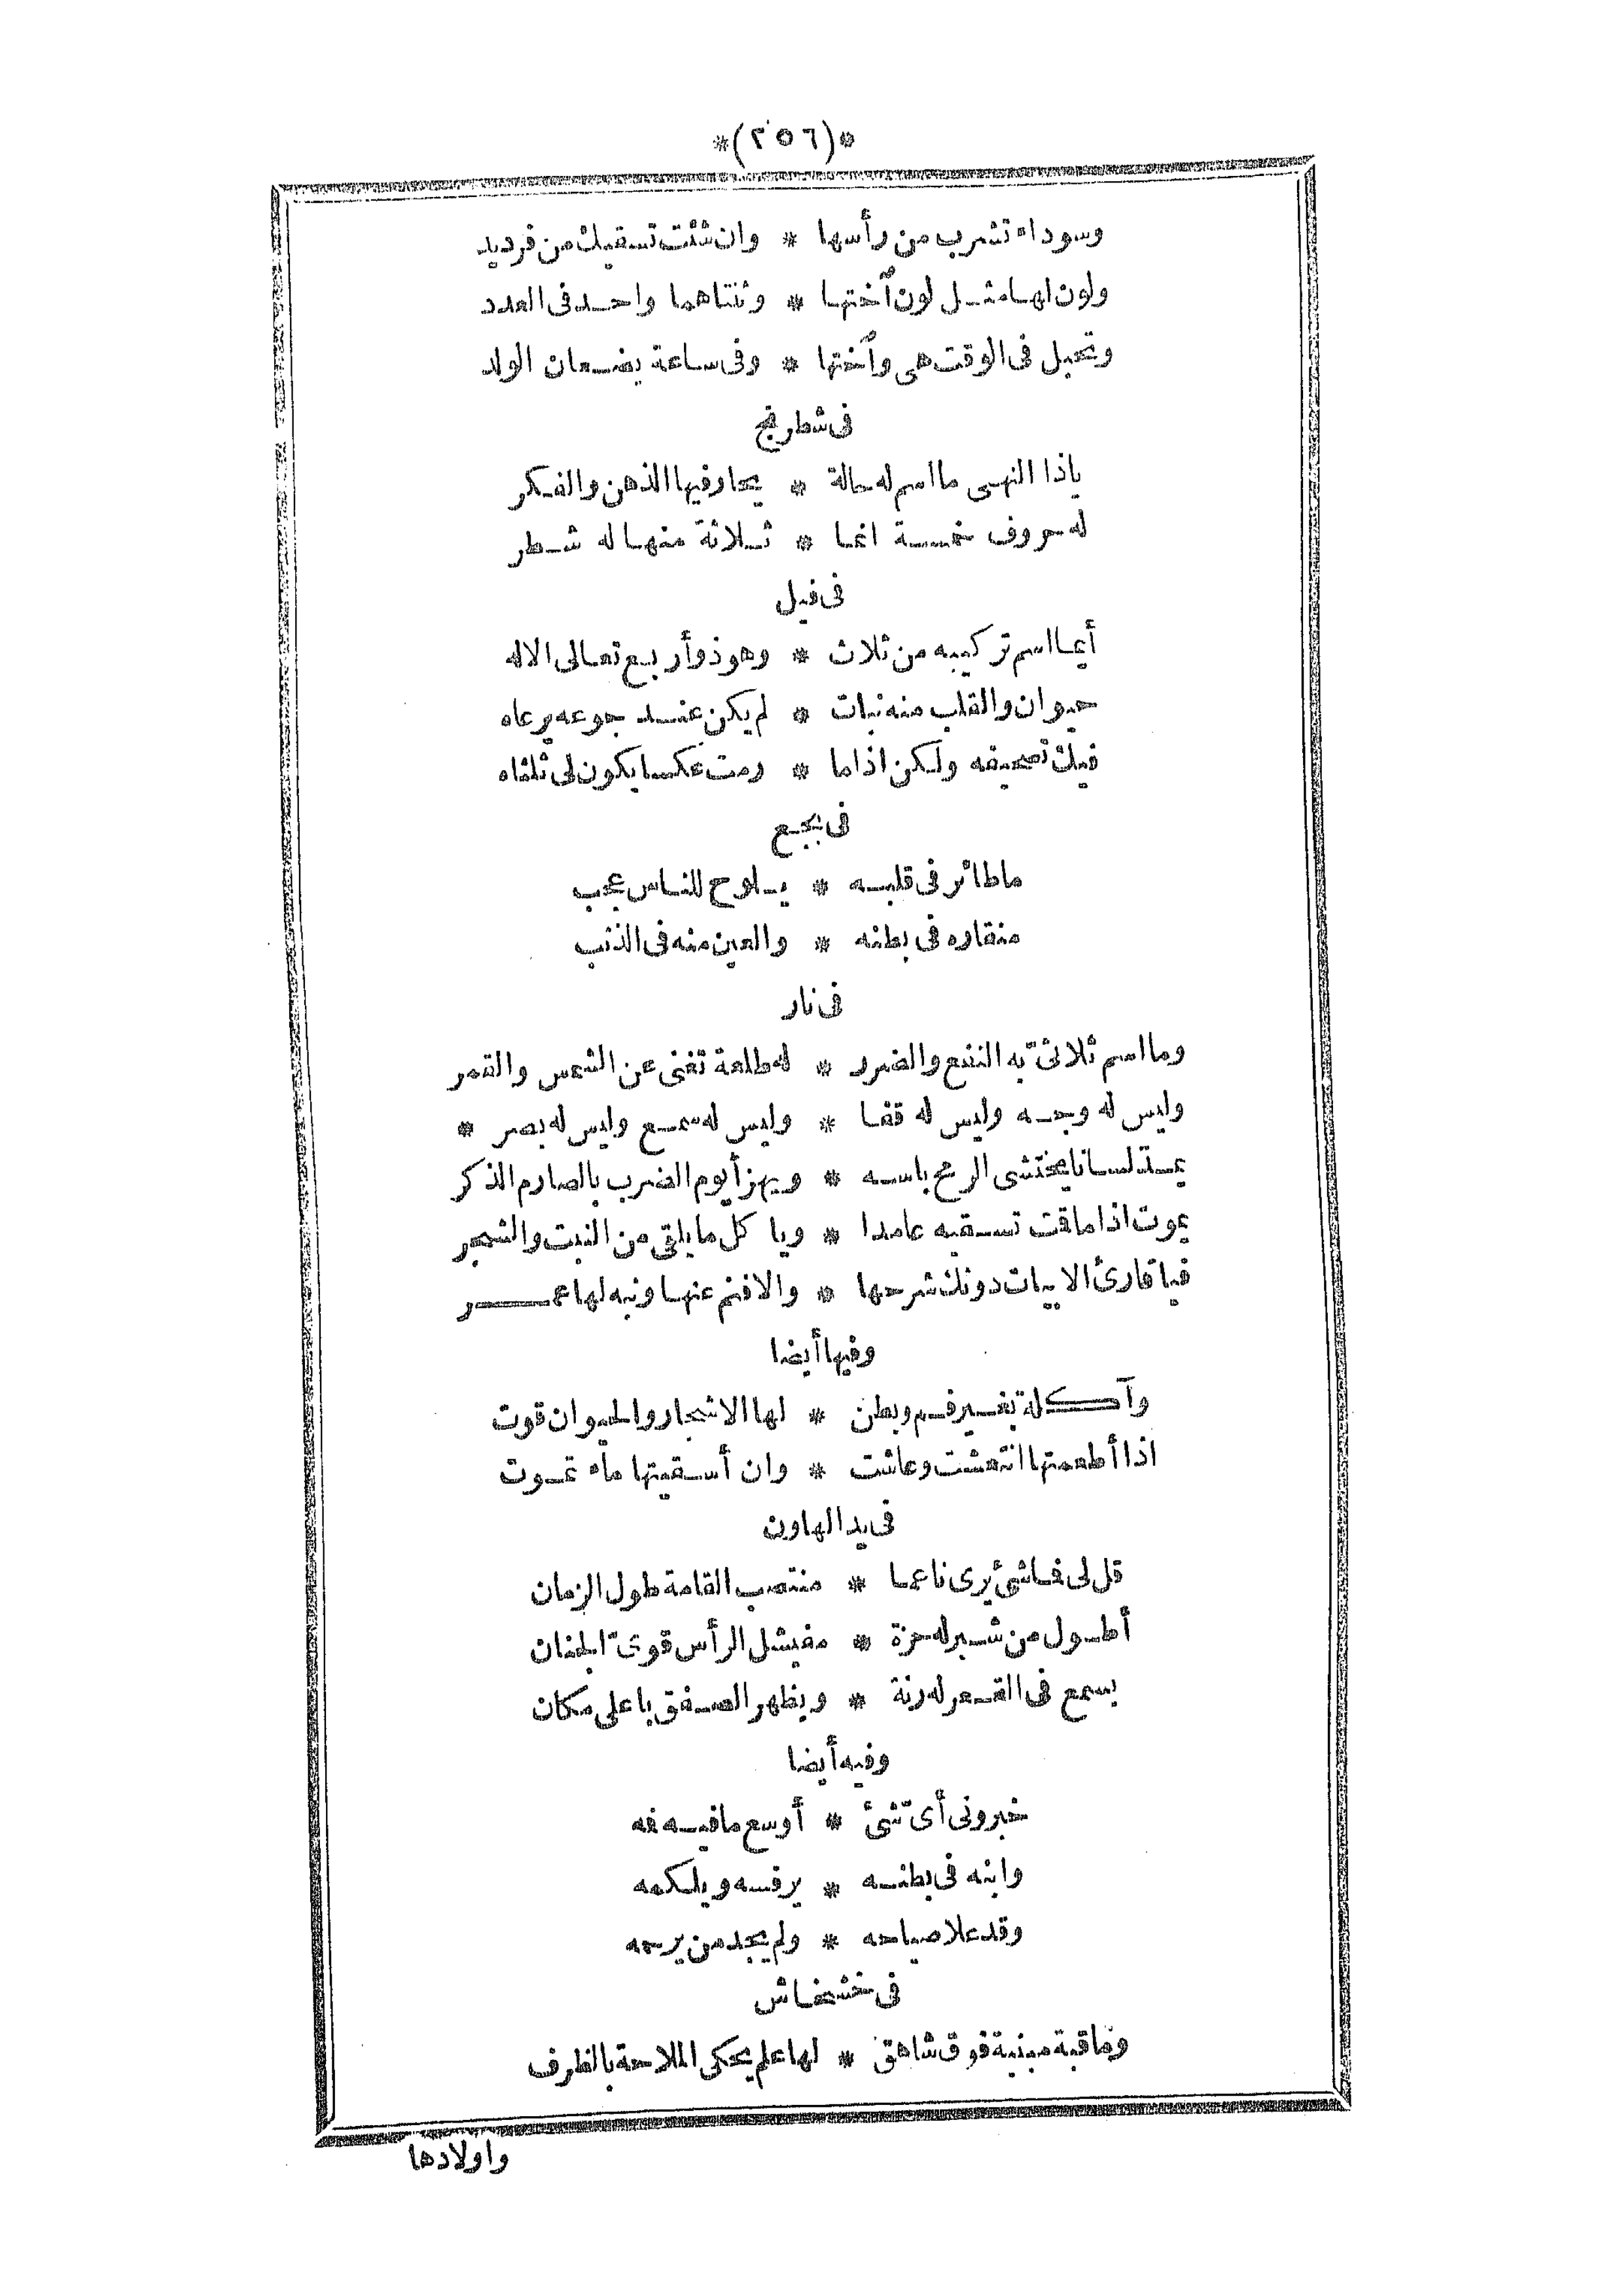 *(٢٥٦)*
وسوداء تشرب من رأسها * وان شئت تسقيك من فرديد
ولون لها مثل لون أختها * وثنتاهما واحد فى العدد
وتحبل فى الوقت هى وأختها * وفى ساعة يضعان الولد
فى شطرنج
ياذا النهى ما اسم له حالة * يحار فيها الذهن والفكر
له حروف خمسة انما * ثلاثة منها له شطر
فى فيل
أيما اسم تركيبه من ثلاث * وهو ذو أربع تعالى الاله
حيوان والقلب منه نبات * لم يكن عند جوعه يرعاه
فيك تصحيفه ولكن اذا ما * رمت عكسا يكون لى ثلثاه
فى بجع
ما طائر فى قلبه * يلوح للناس عجب
منقاره فى بطنه * والعين منه فى الذنب
فى نار
وما اسم ثلاثىّ به النفع والضرر * له طلعة تغنى عن الشمس والقمر
وليس له وجه وليس له قفا * وليس له سمع وليس له بصر *
يمدّ لسانا يختشى الرمح باسه * ويهزأ يوم الضرب بالصارم الذكر
يموت اذا ما قت تسقيه عامدا * ويا كل ما يلقى من النبت والشجر
فيا قارئ الابيات دونك شرحها * والا فنم عنها ونبه لها عمر
وفيها أيضا
وآكلة بغير فم وبطن * لها الاشجار والحيوان قوت
اذا أطعمتها انتعشت وعاشت * وان أسقيتها ماء تموت
فى يد الهاون
قل لى فما شئ يرى ناعما * منتصب القامة طول الزمان
أطول من شبر له حزة * مفيشل الرأس قوىّ الجنان
يسمع فى القعر له رنة * ويظهر الصفق باعلى مكان
وفيه أيضا
خبرونى أىّ شئ * أوسع ما فيه فه
وابنه فى بطنه * يرفسه ويلكمه
وقد علا صياحه * ولم يجد من يرحمه
فى خشخاش
وما قبة مبنية فوق شاهق * لها علم يحكى الملاحة بالظرف
واولادها